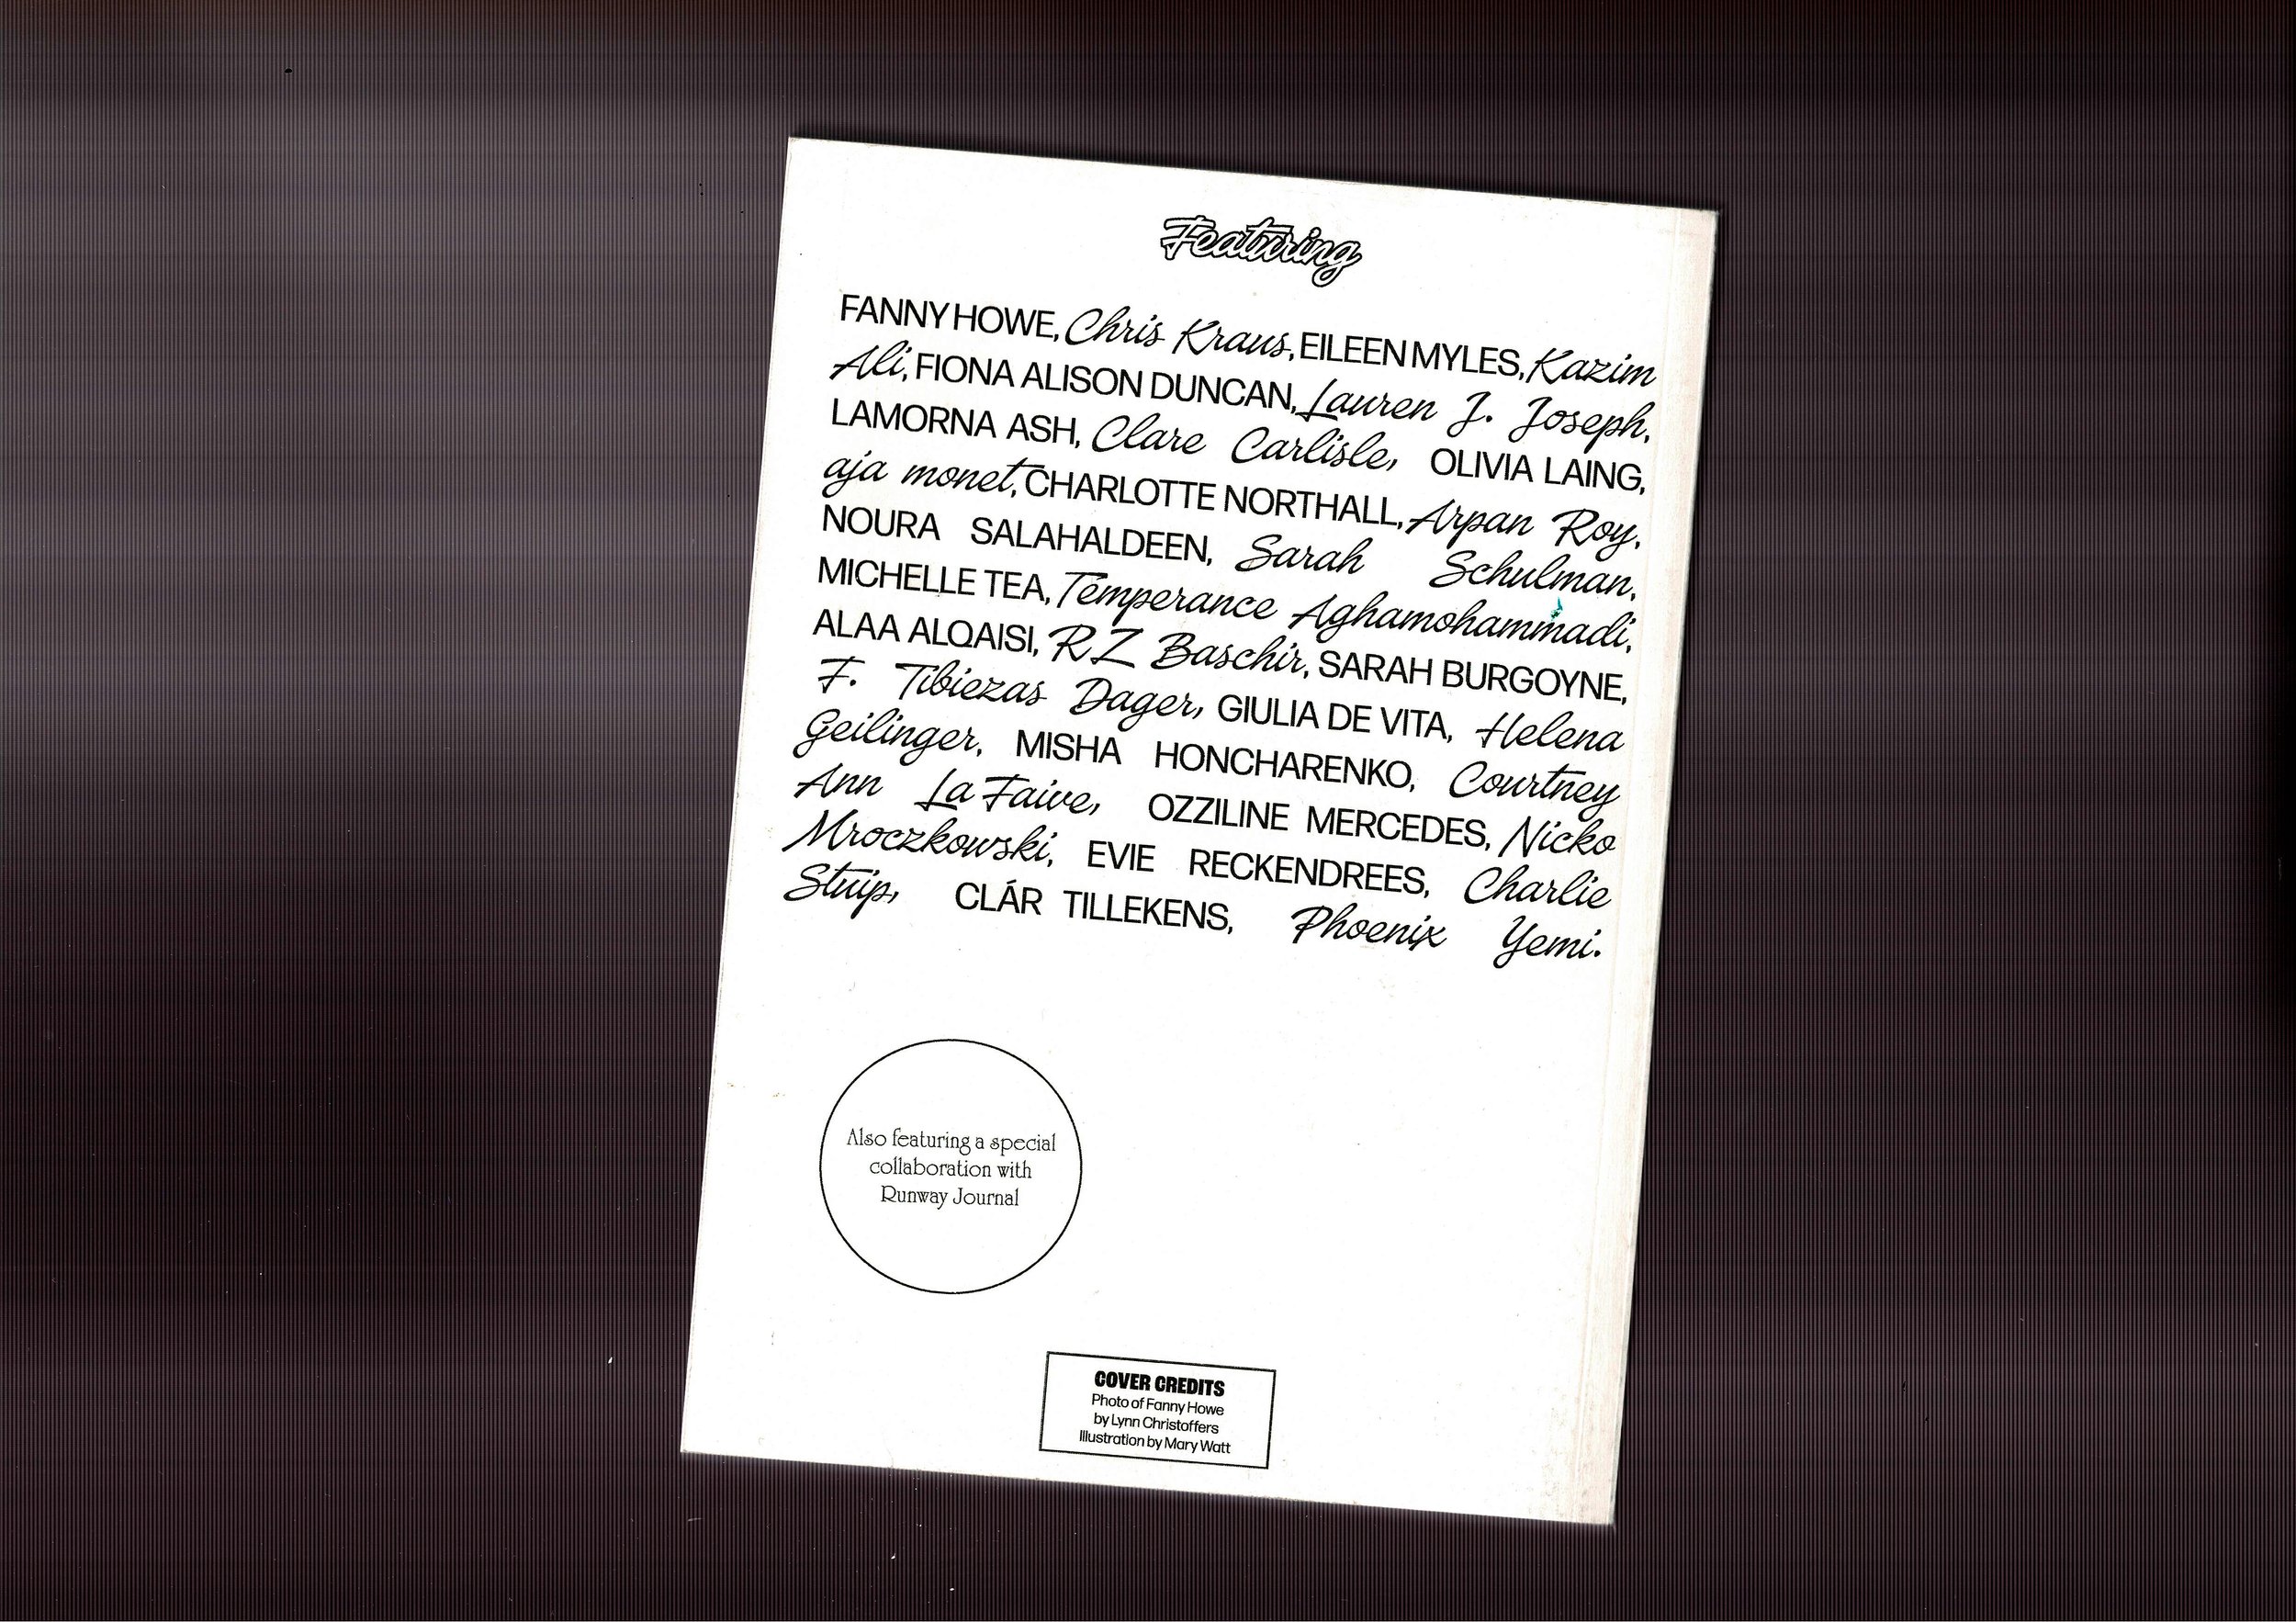 Featuring
FANNY HOWE, Chris Kraus, EILEEN MYLES, Kazim
Ali, FIONA ALISON DUNCAN, Lauren J. Joseph,
LAMORNA ASH, Clare Carlisle, OLIVIA LAING,
aja monet, CHARLOTTE NORTHALL, Arpan Roy,
NOURA SALAHALDEEN, Sarah Schulman,
MICHELLE TEA, Temperance Aghamohammadi,
ALAA ALQAISI, RZ Baschir, SARAH BURGOYNE,
F. Tibiezas Dager, GIULIA DE VITA, Helena
Geilinger, MISHA HONCHARENKO, Courtney
Ann LaFaive, OZZILINE MERCEDES, Nicko
Mroczkowski, EVIE RECKENDREES, Charlie
Stuip, CLÁR TILLEKENS, Phoenix Yemi.
Also featuring a special
collaboration with
Runway Journal
COVER CREDITS
Photo of Fanny Howe
by Lynn Christoffers
Illustration by Mary Watt